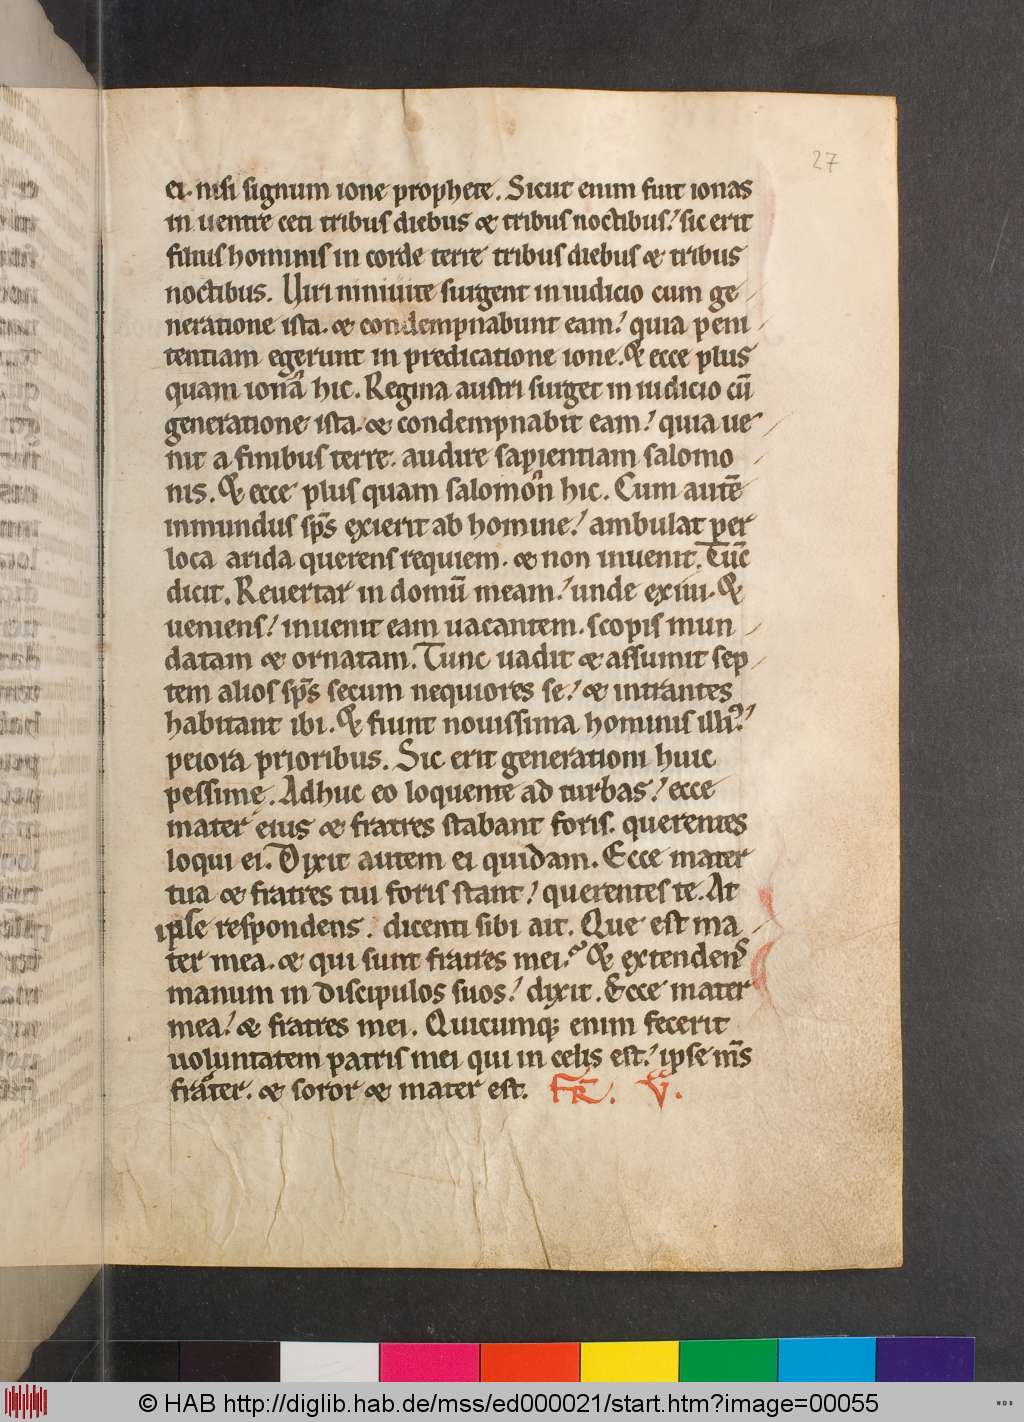 27
ei. nisi signum ione prophete. Sicut enim fuit ionas
in uentre ceti tribus diebus & tribus noctibus. sic erit
filius hominis in corde terre tribus diebus & tribus
noctibus. Uiri niniuite surgent in iudicio cum ge
neratione ista. & condempnabunt eam. quia peni
tentiam egerunt in predicatione ione. & ecce plus
quam iona hic. Regina austri surget in iudicio cū
generatione ista. & condempnabit eam. quia ue
nit a finibus terre. audire sapientiam salomo
nis. & ecce plus quam salomon hic. Cum autē
inmundus sp̄s exierit ab homine. ambulat per
loca arida querens requiem. & non inuenit. Tūc
dicit. Reuertar in domū meam. unde exiui. &
ueniens. inuenit eam uacantem. scopis mun
datam & ornatam. Tunc uadit & assumit sep
tem alios sp̄s secum nequiores se. & intrantes
habitant ibi. & fiunt nouissima hominis illi᷒.
peiora prioribus. Sic erit generationi huic
pessimę. Adhuc eo loquente ad turbas. ecce
mater eius & fratres stabant foris. querentes
loqui ei. Dixit autem ei quidam. Ecce mater
tua & fratres tui foris stant. querentes te. At
ipse respondens. dicenti sibi ait. Que est ma
ter mea. & qui sunt fratres mei. & extendens
manum in discipulos suos. dixit. Ecce mater
mea. & fratres mei. Quicumq; enim fecerit
uoluntatem patris mei qui in celis est. ipse m̄s
frater. & soror & mater est. Fr̄. V.
© HAB http://diglib.hab.de/mss/ed000021/start.htm?image=00055